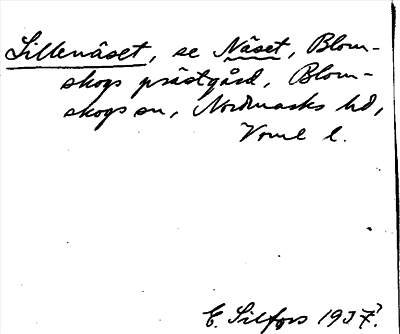 Lillenäset, se Näset, Blom-
skogs prästgård, Blom-
skogs sn, Nordmarks hd,
Vrml l.
E. Silfors 1937?